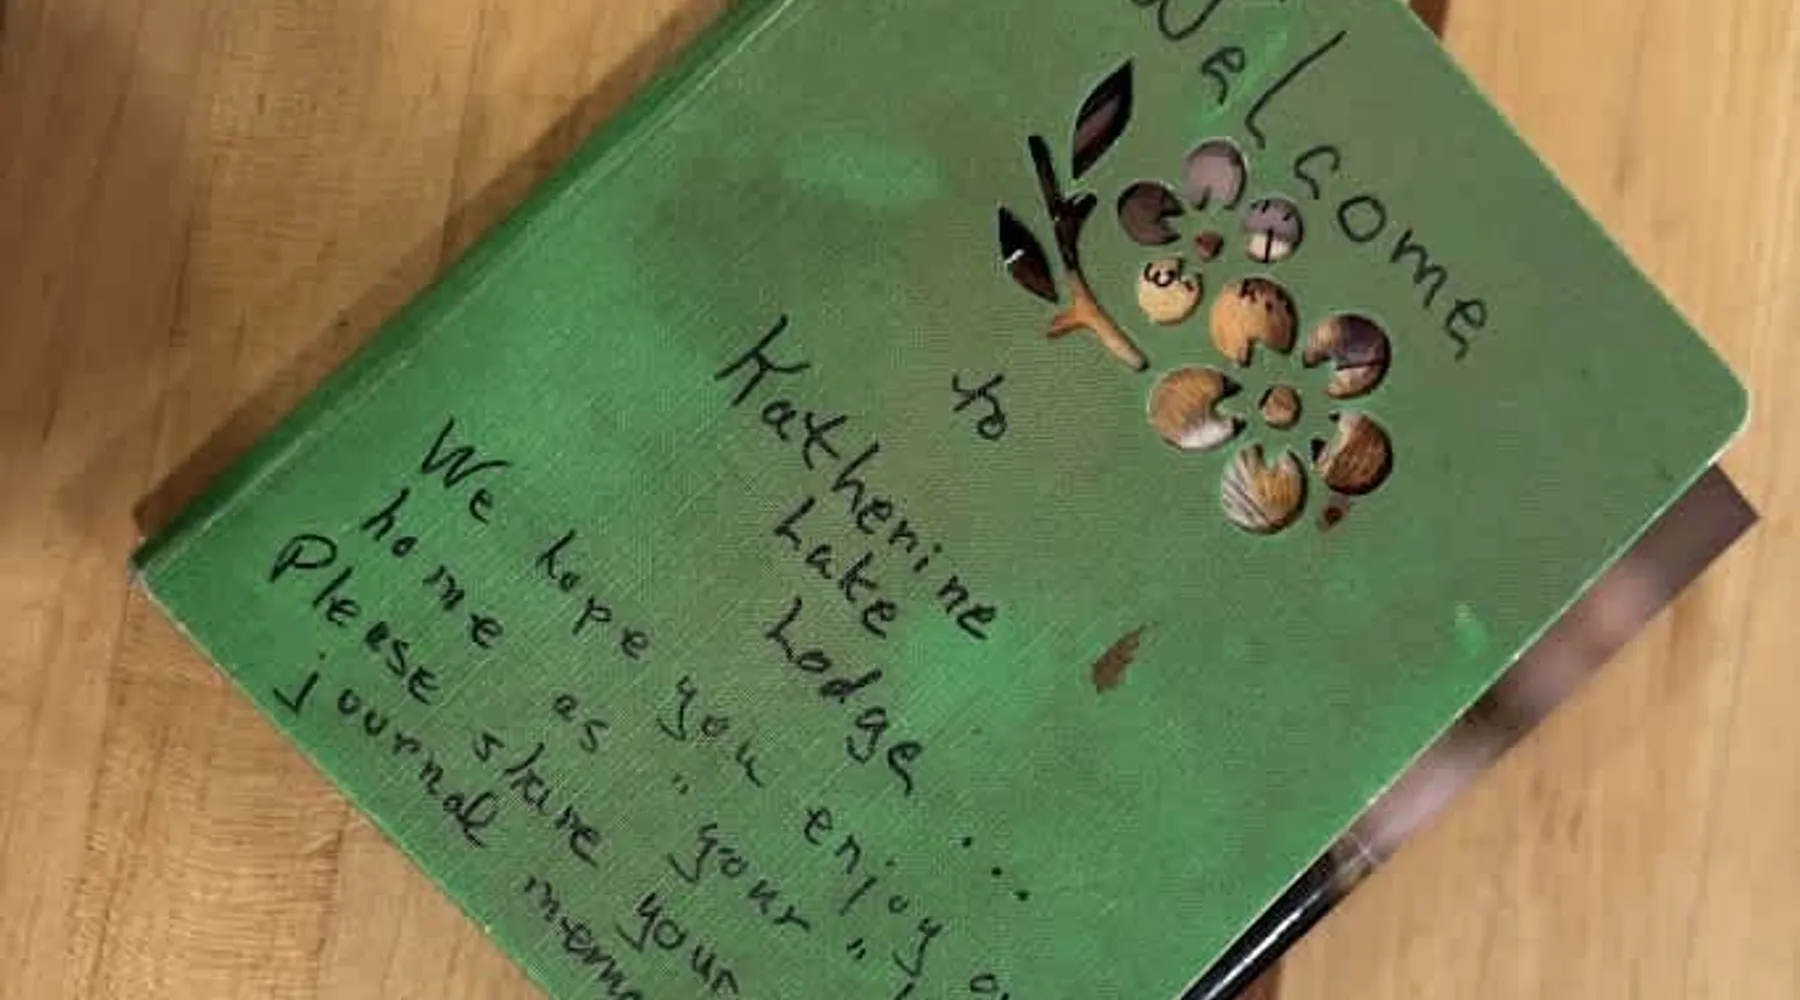 Welcome
to
Katherine
Lake
Lodge...
We hope you enjoy
home as "your"
Please share your
journal